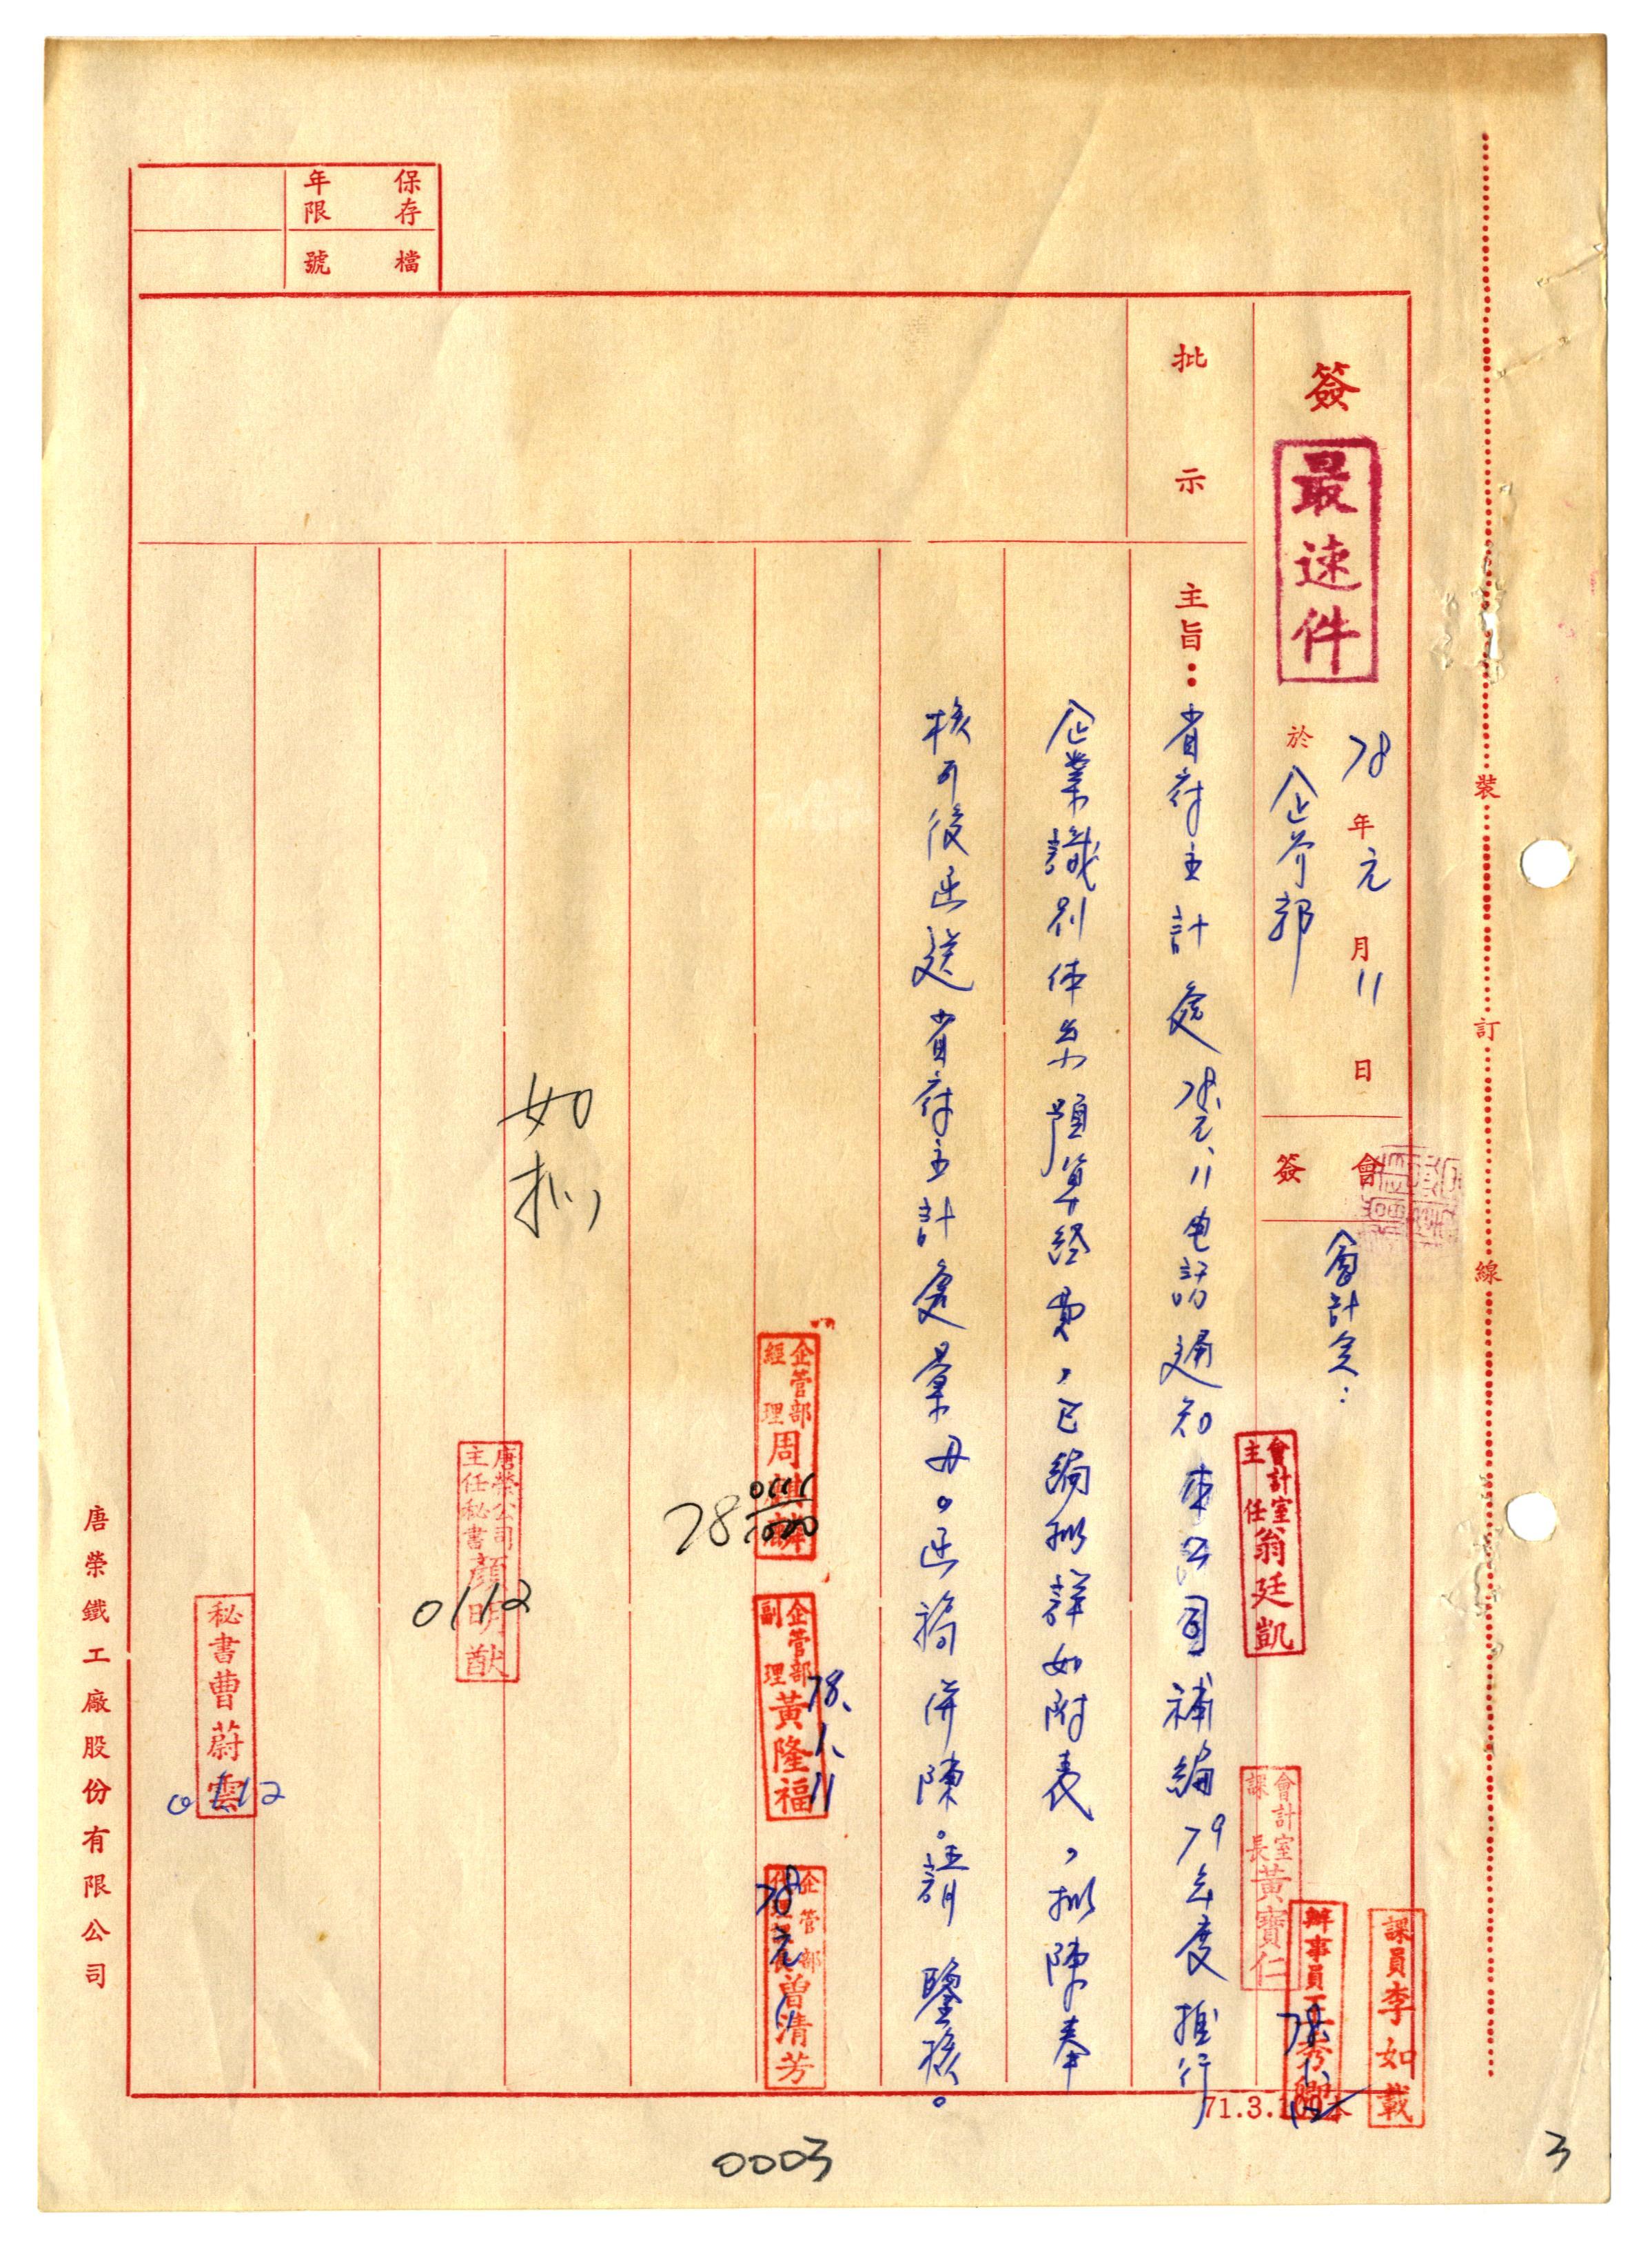 保存年限
檔號
裝訂線
簽
最速件
78年元月11日
於企管部
會簽
會計室：
會計室主任翁廷凱
會計室課長黃寶仁
課員李如載
批示
主旨：省府主計處78.元.11電話通知本公司補編79年度推行
企業識別体系預算經費，已編擬詳如附表，擬陳奉
核可後函送省府主計處彙毋。函稿併陳。請 鑒核。
企管部經理周麒麟
78 0111
企管部副理黃隆福
78.1.11
企管部
曾清芳
如擬
唐榮公司主任秘書顏明猷
0112
秘書曹蔚雲
0112
唐榮鐵工廠股份有限公司
0003
3